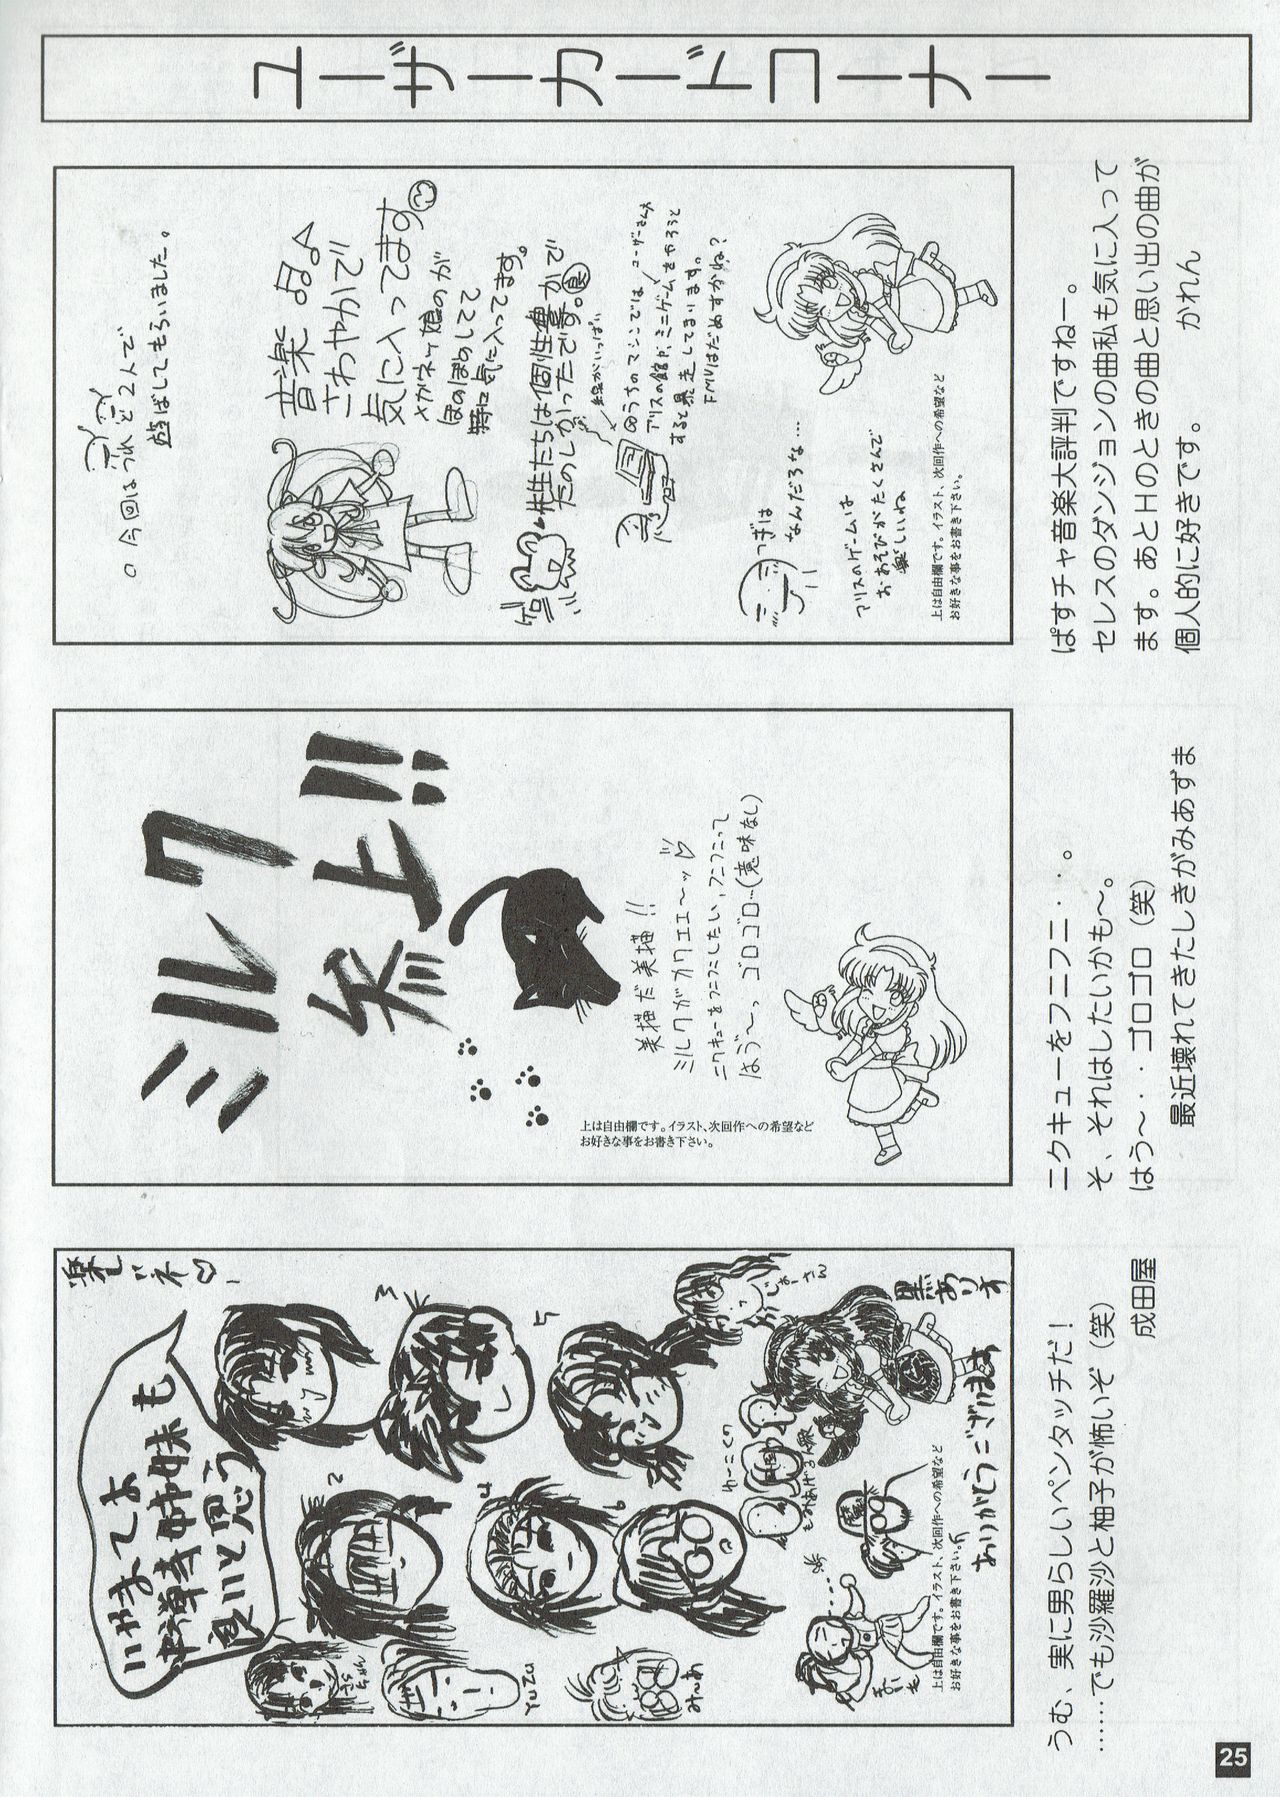 ユーザーカードコーナー
うむ、実に男らしいペンタッチだ！
……でも沙羅沙と柚子が怖いぞ（笑）
成田屋
いやまてよ
姉妹も
良いと思う
楽しいネ
2
3
4
5
6
YUZU
黒ありす
ありがとうございます
上は自由欄です。イラスト、次回作への希望など
お好きな事をお書き下さい。
ニクキューをフニフニ・・。
そ、それはしたいかも～。
はう～・・ゴロゴロ（笑）
最近壊れてきたしきがみあずま
ミルク
参上!!
美猫だ美猫!!
ミルクがカワエエ～ッ♡
ニクキューをフニフニしたい,フニフニって
はう～っゴロゴロ…(意味なし)
上は自由欄です。イラスト、次回作への希望など
お好きな事をお書き下さい。
ぱすチャ音楽大評判ですねー。
セレスのダンジョンの曲私も気に入って
ます。あとＨのときの曲と思い出の曲が
個人的に好きです。　かれん
○今回はつれと2人で
遊ばしてもらいました。
音楽♫♪
さわやかで
気に入ってます
メガネっ娘のが
ほのぼのしてて
特に気に入ってます。
ゲロ
先生たちは個性豊かで
たのしかったです。
絵がいっぱい
うちのマシンでは
アリスの館や、ミニゲームをやろうと
すると暴走してまいます。
FMVはだめすかね？
つぎは
なんだろな…
アリスのゲームは
おあそびがたくさんで
楽しいね
上は自由欄です。イラスト、次回作への希望など
お好きな事をお書き下さい。
25